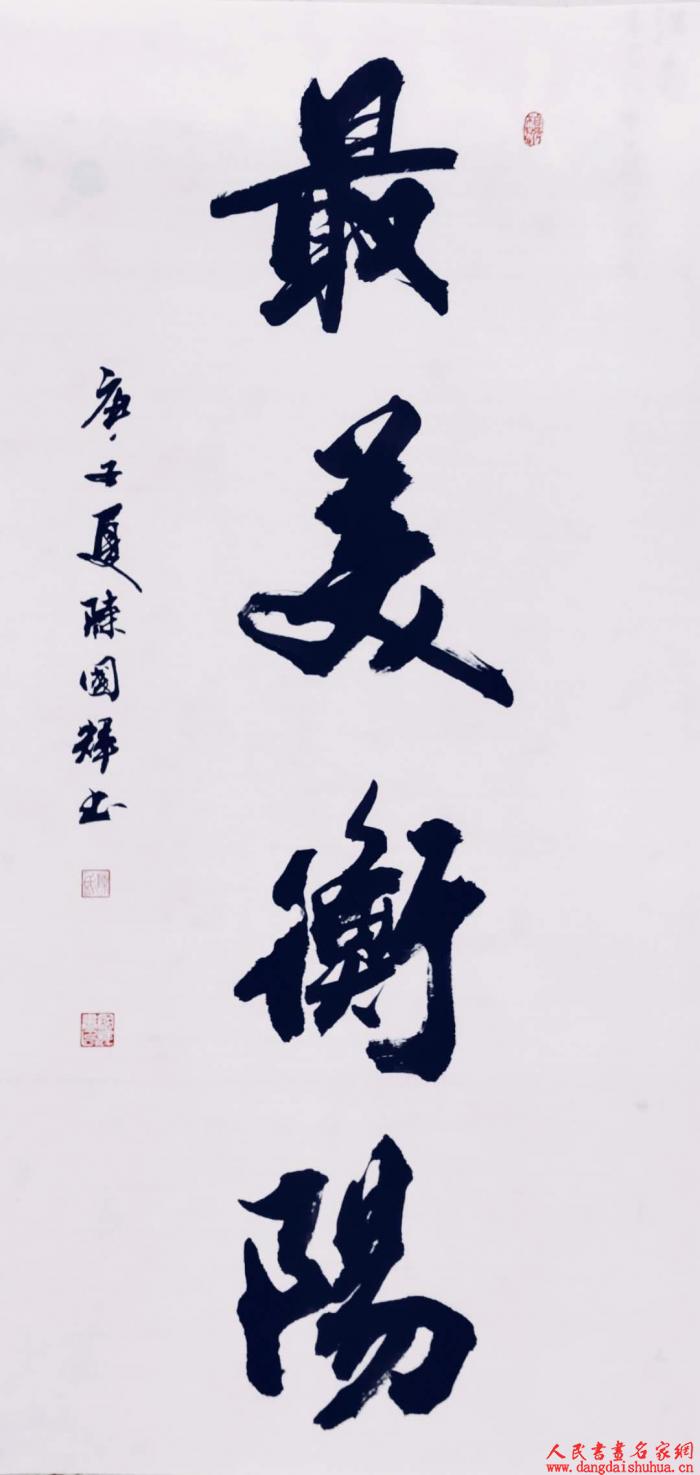 最美衡陽
庚子夏陳國輝書
人民書畫名家網
www.dangdaishuhua.cn